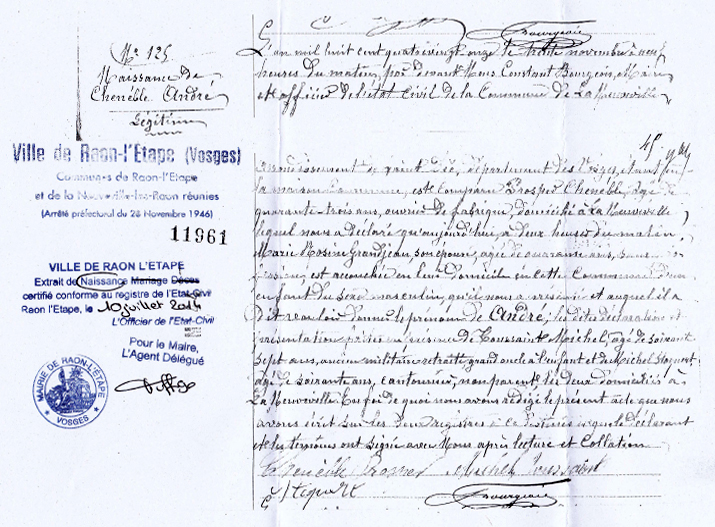 Bourgeois
N° 125
Naissance de
Chenèble André
Légitime
Ville de Raon-l'Etape (Vosges)
Communes de Raon-l'Etape
et de la Neuveville-lès-Raon réunies
(Arrêté préfectoral du 28 Novembre 1946)
11961
VILLE DE RAON L'ETAPE
Extrait de Naissance Mariage Décès
certifié conforme au registre de l'Etat-Civil
Raon l'Etape, le 10 juillet 2014
L'Officier de l'Etat-Civil
Pour le Maire,
L'Agent Délégué
MAIRIE DE RAON-L'ÉTAPE
VOSGES
L'an mil huit cent quatre vingt onze le trente novembre à neuf
heures du matin, par devant Nous Constant Bourgeois, Maire
et officier de l'état civil de la Commune de La Neuveville
arrondissement de Saint Dié, département des Vosges, étant en
la maison Commune, est comparu Prosper Chenèble, âgé de
quarante-trois ans, ouvrier de fabrique, domicilié à La Neuveville
lequel nous a déclaré qu'aujourd'hui à deux heures du matin
Marie Rosine Grandjean son épouse, âgée de quarante ans, sans
est accouchée en leur domicile en cette Commune d'un
enfant du sexe masculin, qu'il nous a présenté et auquel il a
dit vouloir donner le prénom de André, les dites déclaration et
présentation faites en présence de Toussaint Michel, âgé de soixante
sept ans, ancien militaire retraité grand oncle à l'enfant et de Michel Stiquert
âgé de soixante ans, cantonnier, non parent, les deux domiciliés à
La Neuveville. En foi de quoi nous avons rédigé le présent acte que nous
avons écrit sur les deux registres à ce destinés et que le déclarant
et les témoins ont signé avec Nous après lecture et Collation
Chenèble Prosper Michel Toussaint
Bourgeois